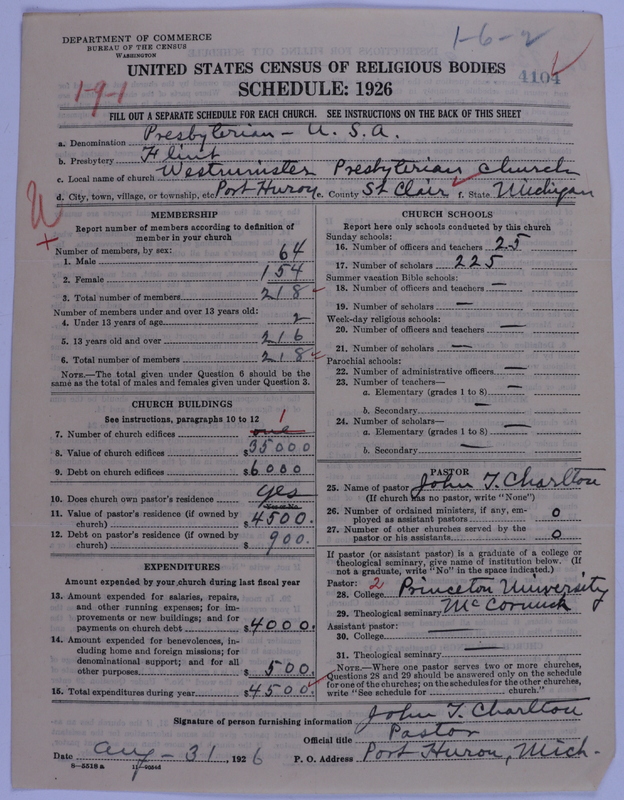 DEPARTMENT OF COMMERCE
BUREAU OF THE CENSUS
WASHINGTON
1-6-2
UNITED STATES CENSUS OF RELIGIOUS BODIES
4104
1-9-1
SCHEDULE: 1926
FILL OUT A SEPARATE SCHEDULE FOR EACH CHURCH. SEE INSTRUCTIONS ON THE BACK OF THIS SHEET
a. Denomination Presbyterian - U.S.A.
b. Presbytery Flint
c. Local name of church Westminster Presbyterian Church
d. City, town, village, or township, etc Port Huron e. County St Clair f. State Michigan
MEMBERSHIP
Report number of members according to definition of
member in your church
Number of members, by sex:
1. Male 64
2. Female 154
3. Total number of members 218
Number of members under and over 13 years old:
4. Under 13 years of age 2
5. 13 years old and over 216
6. Total number of members 218
NOTE.—The total given under Question 6 should be the
same as the total of males and females given under Question 3.
CHURCH BUILDINGS
See instructions, paragraphs 10 to 12
1
7. Number of church edifices one
8. Value of church edifices $35000
9. Debt on church edifices $6000
10. Does church own pastor's residence yes
Yes or No
11. Value of pastor's residence (if owned by
church) $4500.
12. Debt on pastor's residence (if owned by
church) $900.
EXPENDITURES
Amount expended by your church during last fiscal year
13. Amount expended for salaries, repairs,
and other running expenses; for im-
provements or new buildings; and for
payments on church debt $4000.
14. Amount expended for benevolences, in-
cluding home and foreign missions; for
denominational support; and for all
other purposes $500.
15. Total expenditures during year $4500
CHURCH SCHOOLS
Report here only schools conducted by this church
Sunday schools:
16. Number of officers and teachers 25
17. Number of scholars 225
Summer vacation Bible schools:
18. Number of officers and teachers —
19. Number of scholars —
Week-day religious schools:
20. Number of officers and teachers —
21. Number of scholars —
Parochial schools:
22. Number of administrative officers —
23. Number of teachers—
a. Elementary (grades 1 to 8) —
b. Secondary —
24. Number of scholars—
a. Elementary (grades 1 to 8) —
b. Secondary —
PASTOR
25. Name of pastor John T. Charlton
(If church has no pastor, write "None")
26. Number of ordained ministers, if any, em-
ployed as assistant pastors 0
27. Number of other churches served by the
pastor or his assistants 0
If pastor (or assistant pastor) is a graduate of a college or
theological seminary, give name of institution below. (If
not a graduate, write "No" in the space indicated.)
Pastor: 2
28. College Princeton University
29. Theological seminary McCormick
Assistant pastor:
30. College —
31. Theological seminary —
NOTE.—Where one pastor serves two or more churches,
Questions 28 and 29 should be answered only on the schedule
for one of the churches; on the schedules for the other churches,
write "See schedule for church."
Signature of person furnishing information John T. Charlton
Official title Pastor
Date Aug - 31, 1926 P. O. Address Port Huron, Mich.
8-5518 a